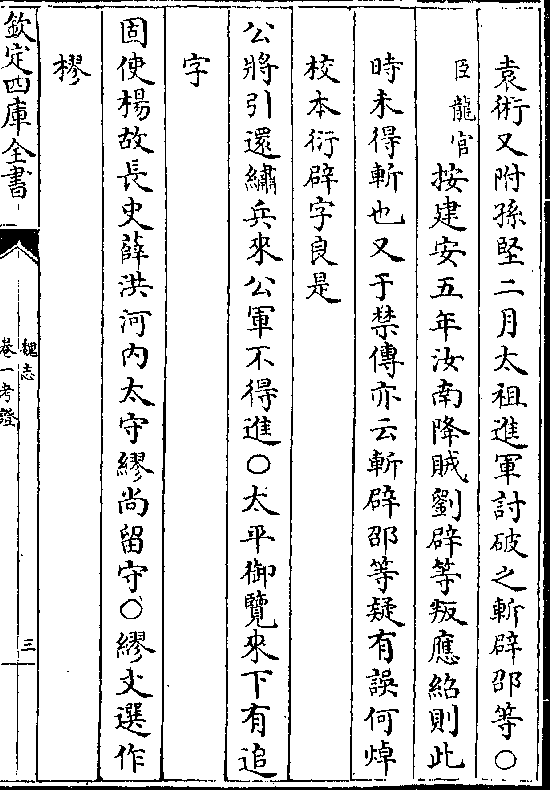 袁術又附孫堅二月太祖進軍討破之斬辟邵等〇
臣龍官按建安五年汝南降賊劉辟等叛應紹則此
時未得斬也又于禁傳亦云斬辟邵等疑有誤何焯
校本衍辟字良是
公將引還繡兵來公軍不得進〇太平御覽來下有追
字
固使楊故長史薛洪河內太守繆尚留守〇繆文選作
樛
欽定四庫全書
魏志
卷一考證
三